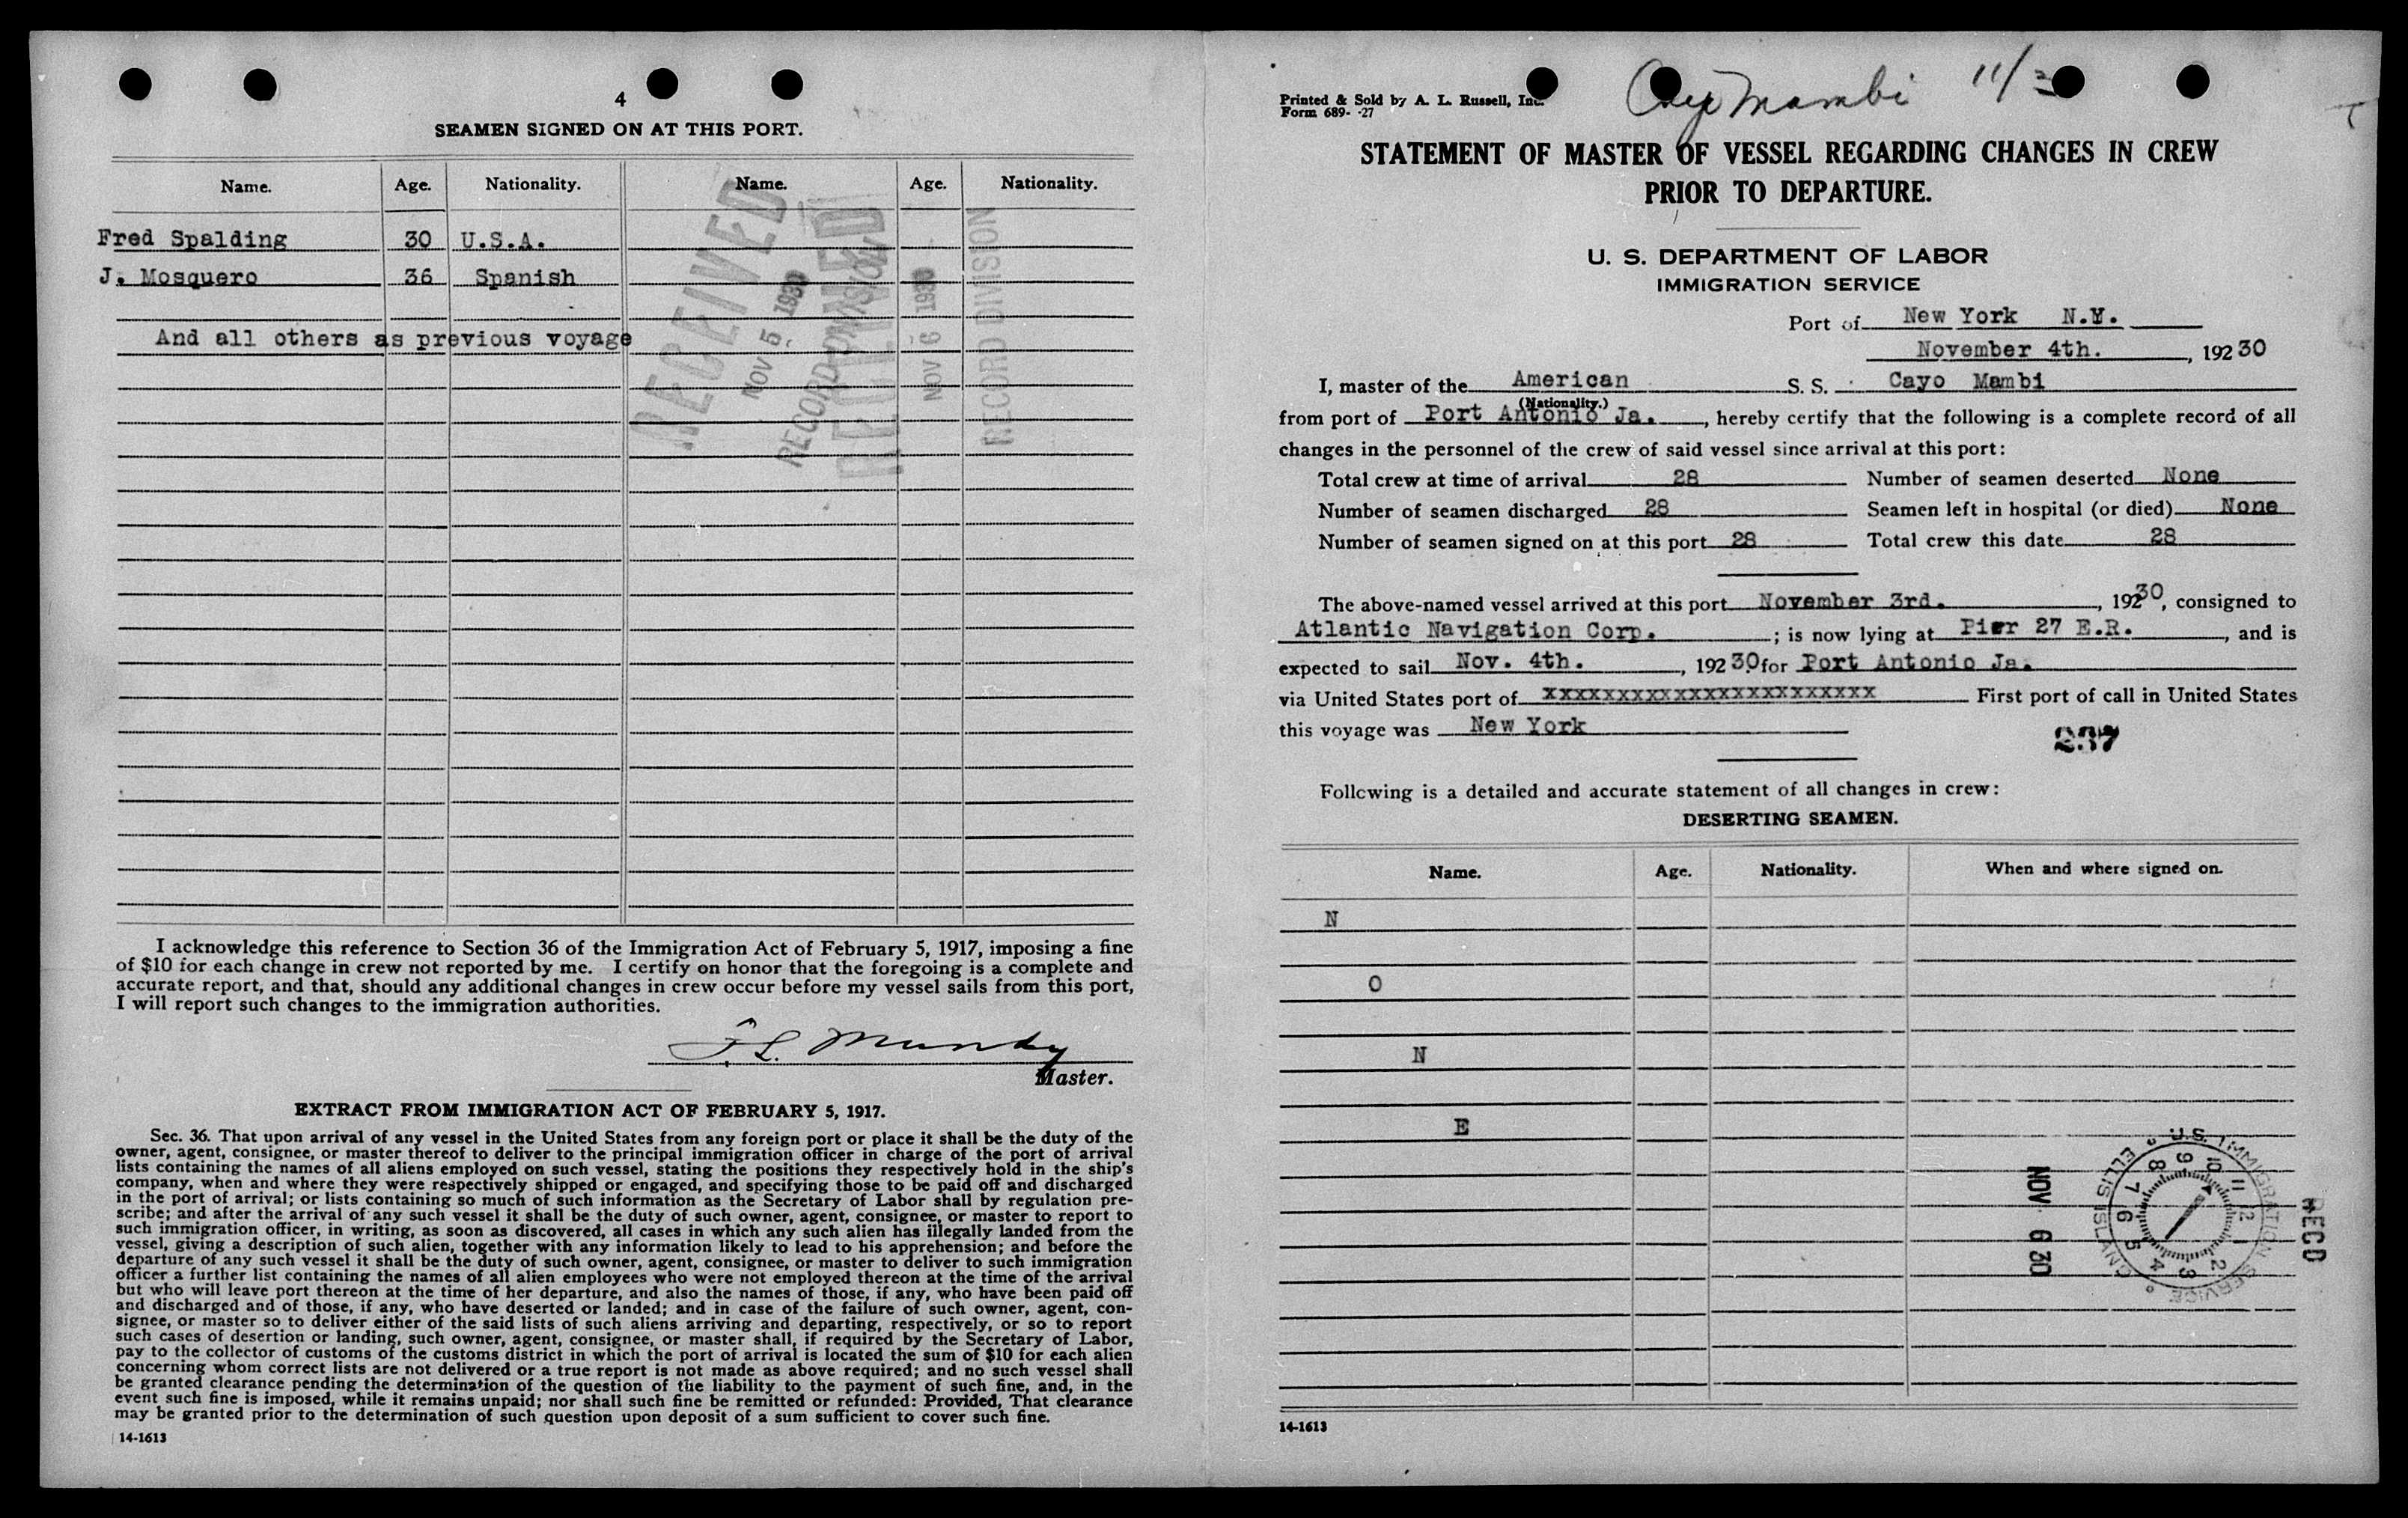 4
SEAMEN SIGNED ON AT THIS PORT.
Name. Age. Nationality. Name. Age. Nationality.
Fred Spalding 30 U.S.A.
J. Mosquero 36 Spanish
And all others as previous voyage
RECEIVED
NOV 5 1930
RECORD DIVISION
RECEIVED
NOV 6 1930
RECORD DIVISION
I acknowledge this reference to Section 36 of the Immigration Act of February 5, 1917, imposing a fine
of $10 for each change in crew not reported by me. I certify on honor that the foregoing is a complete and
accurate report, and that, should any additional changes in crew occur before my vessel sails from this port,
I will report such changes to the immigration authorities.
Master.
EXTRACT FROM IMMIGRATION ACT OF FEBRUARY 5, 1917.
Sec. 36. That upon arrival of any vessel in the United States from any foreign port or place it shall be the duty of the
owner, agent, consignee, or master thereof to deliver to the principal immigration officer in charge of the port of arrival
lists containing the names of all aliens employed on such vessel, stating the positions they respectively hold in the ship's
company, when and where they were respectively shipped or engaged, and specifying those to be paid off and discharged
in the port of arrival; or lists containing so much of such information as the Secretary of Labor shall by regulation pre-
scribe; and after the arrival of any such vessel it shall be the duty of such owner, agent, consignee, or master to report to
such immigration officer, in writing, as soon as discovered, all cases in which any such alien has illegally landed from the
vessel, giving a description of such alien, together with any information likely to lead to his apprehension; and before the
departure of any such vessel it shall be the duty of such owner, agent, consignee, or master to deliver to such immigration
officer a further list containing the names of all alien employees who were not employed thereon at the time of the arrival
but who will leave port thereon at the time of her departure, and also the names of those, if any, who have been paid off
and discharged and of those, if any, who have deserted or landed; and in case of the failure of such owner, agent, con-
signee, or master so to deliver either of the said lists of such aliens arriving and departing, respectively, or so to report
such cases of desertion or landing, such owner, agent, consignee, or master shall, if required by the Secretary of Labor,
pay to the collector of customs of the customs district in which the port of arrival is located the sum of $10 for each alien
concerning whom correct lists are not delivered or a true report is not made as above required; and no such vessel shall
be granted clearance pending the determination of the question of the liability to the payment of such fine, and, in the
event such fine is imposed, while it remains unpaid; nor shall such fine be remitted or refunded: Provided, That clearance
may be granted prior to the determination of such question upon deposit of a sum sufficient to cover such fine.
14-1613
Printed & Sold by A. L. Russell, Inc.
Form 689- -27
Cayo Mambi 11/3
STATEMENT OF MASTER OF VESSEL REGARDING CHANGES IN CREW
PRIOR TO DEPARTURE.
U. S. DEPARTMENT OF LABOR
IMMIGRATION SERVICE
Port of New York N.Y.
November 4th. , 192 30
I, master of the American S. S. Cayo Mambi
(Nationality.)
from port of Port Antonio Ja. , hereby certify that the following is a complete record of all
changes in the personnel of the crew of said vessel since arrival at this port:
Total crew at time of arrival 28 Number of seamen deserted None
Number of seamen discharged 28 Seamen left in hospital (or died) None
Number of seamen signed on at this port 28 Total crew this date 28
The above-named vessel arrived at this port November 3rd. , 192 30, consigned to
Atlantic Navigation Corp. ; is now lying at Pier 27 E.R. , and is
expected to sail Nov. 4th. , 192 30 for Port Antonio Ja.
via United States port of xxxxxxxxxxxxxxxxxxxxxxx First port of call in United States
this voyage was New York
237
Following is a detailed and accurate statement of all changes in crew:
DESERTING SEAMEN.
Name. Age. Nationality. When and where signed on.
N
O
N
E
U.S. IMMIGRATION SERVICE ELLIS ISLAND
1 2 3 4 5 6 7 8 9 10 11 12
NOV 6 30
RECD
14-1613